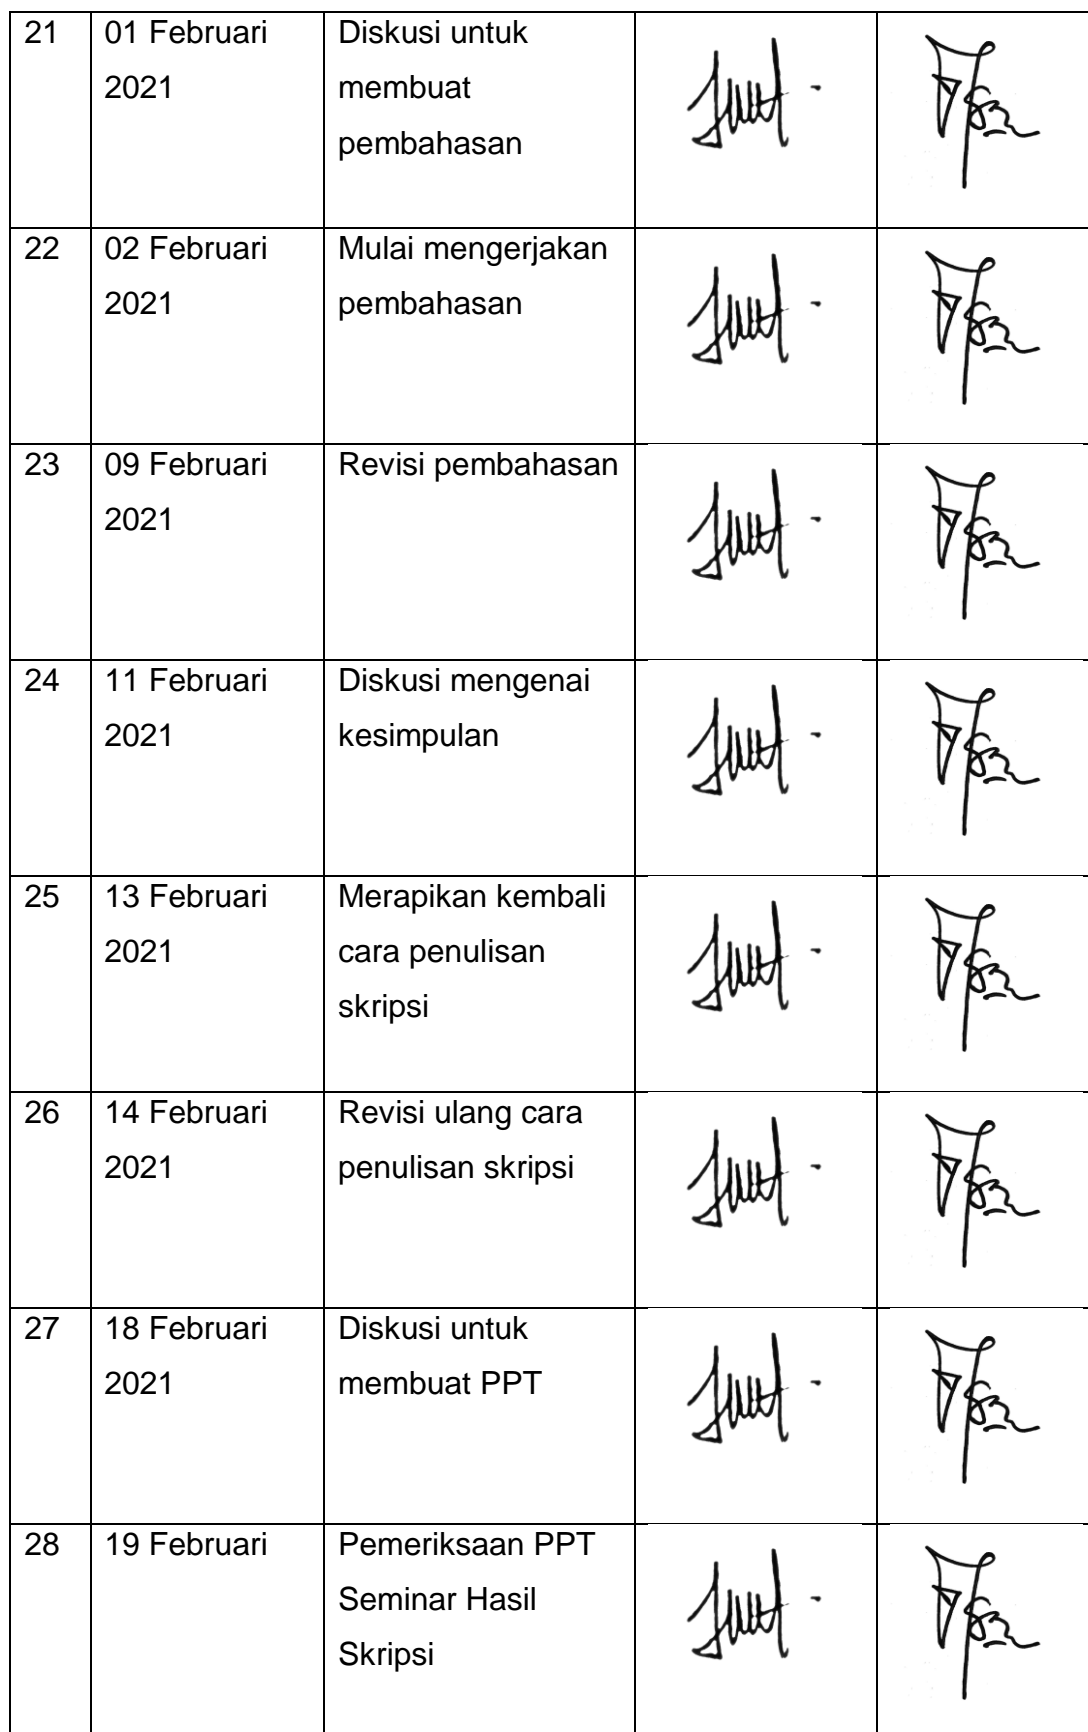 21 01 Februari Diskusi untuk
2021 membuat
pembahasan
22 02 Februari Mulai mengerjakan
2021 pembahasan
23 09 Februari Revisi pembahasan
2021
24 11 Februari Diskusi mengenai
2021 kesimpulan
25 13 Februari Merapikan kembali
2021 cara penulisan
skripsi
26 14 Februari Revisi ulang cara
2021 penulisan skripsi
27 18 Februari Diskusi untuk
2021 membuat PPT
28 19 Februari Pemeriksaan PPT
Seminar Hasil
Skripsi